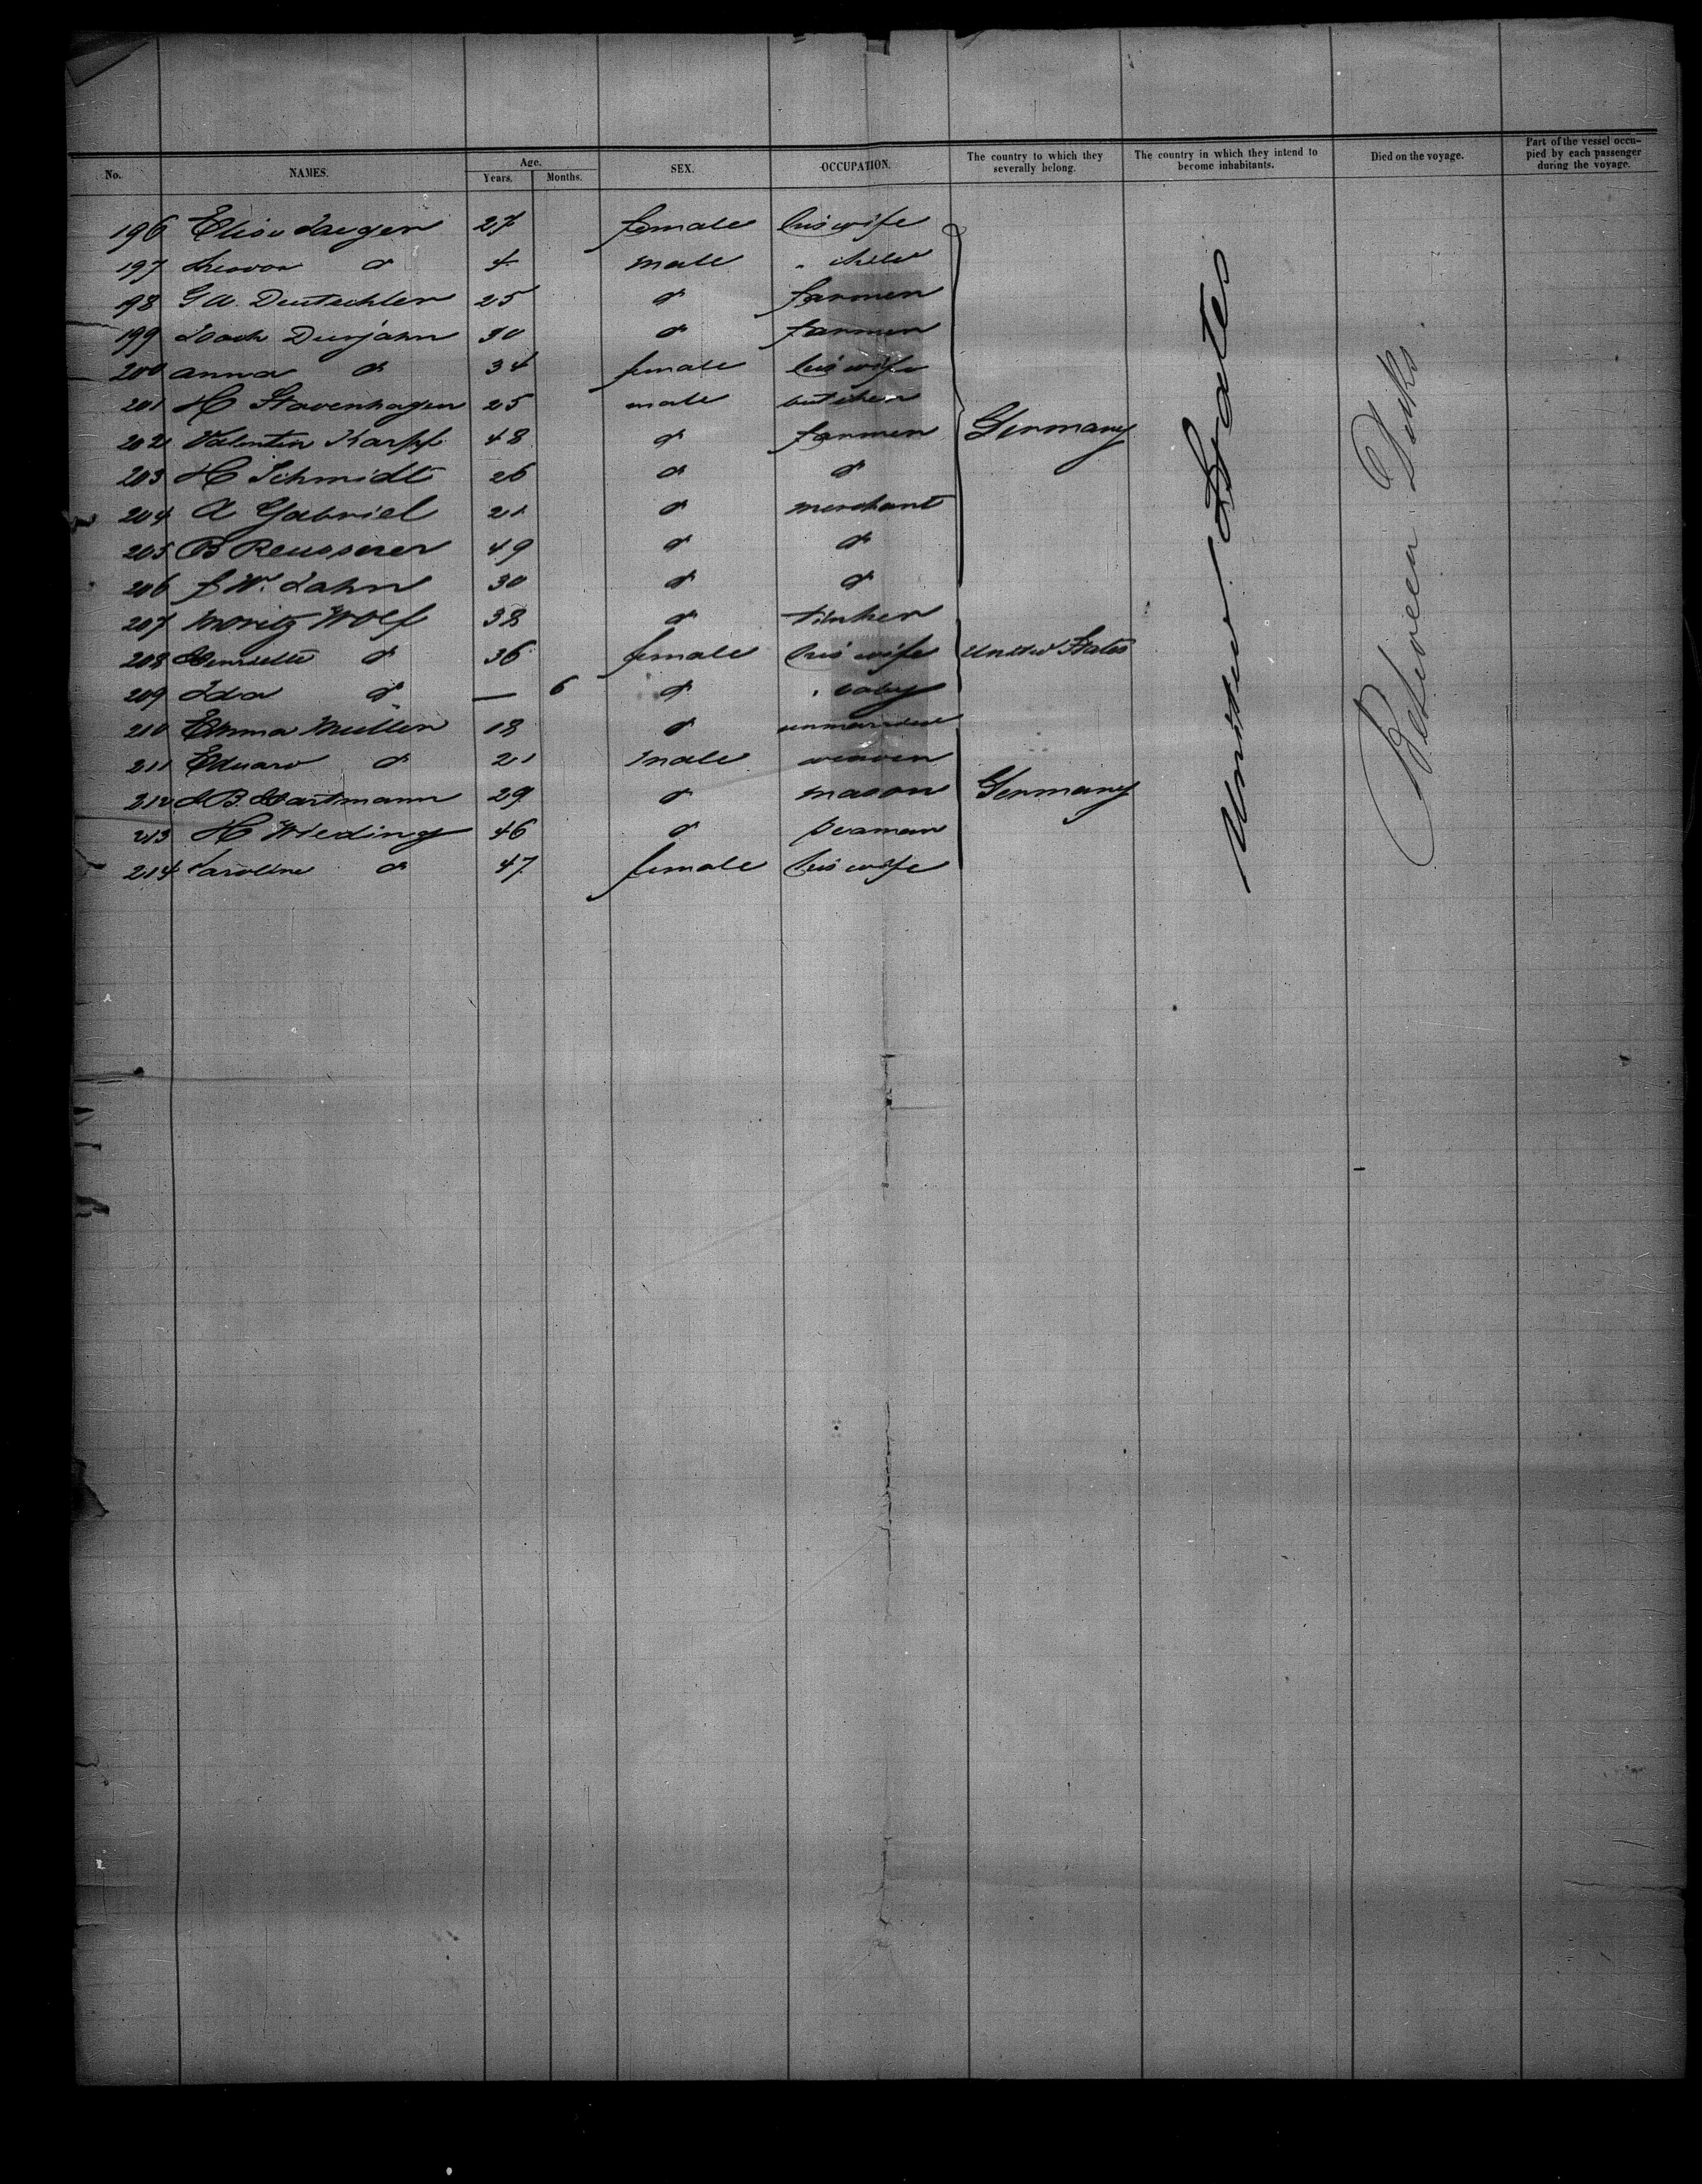 No. NAMES. Age. Years. Months. SEX. OCCUPATION. The country to which they severally belong. The country in which they intend to become inhabitants. Died on the voyage. Part of the vessel occupied by each passenger during the voyage.
196 Elise Jaeger 27 female his wife
197 do 4 male " child
198 G A. Deutschler 25 do farmer
199 Durjahn 30 do farmer
200 Anna do 34 female his wife
201 H Stavenhagen 25 male butcher
202 Valentin Karpf 48 do farmer Germany
203 H Schmidt 26 do do
204 A Gabriel 21 do merchant
205 B Reusserer 49 do do
206 J W. Jahn 30 do do
207 Moritz Wolf 38 do tinker
208 Henriette do 36 female his wife United States
209 Ida do — 6 do " baby
210 Emma Muller 18 do unmarried
211 Eduard do 21 male weaver
212 J B. Hartmann 29 do mason Germany
213 H Wieding 46 do seaman
214 Caroline do 47 female his wife
United States
Between Decks